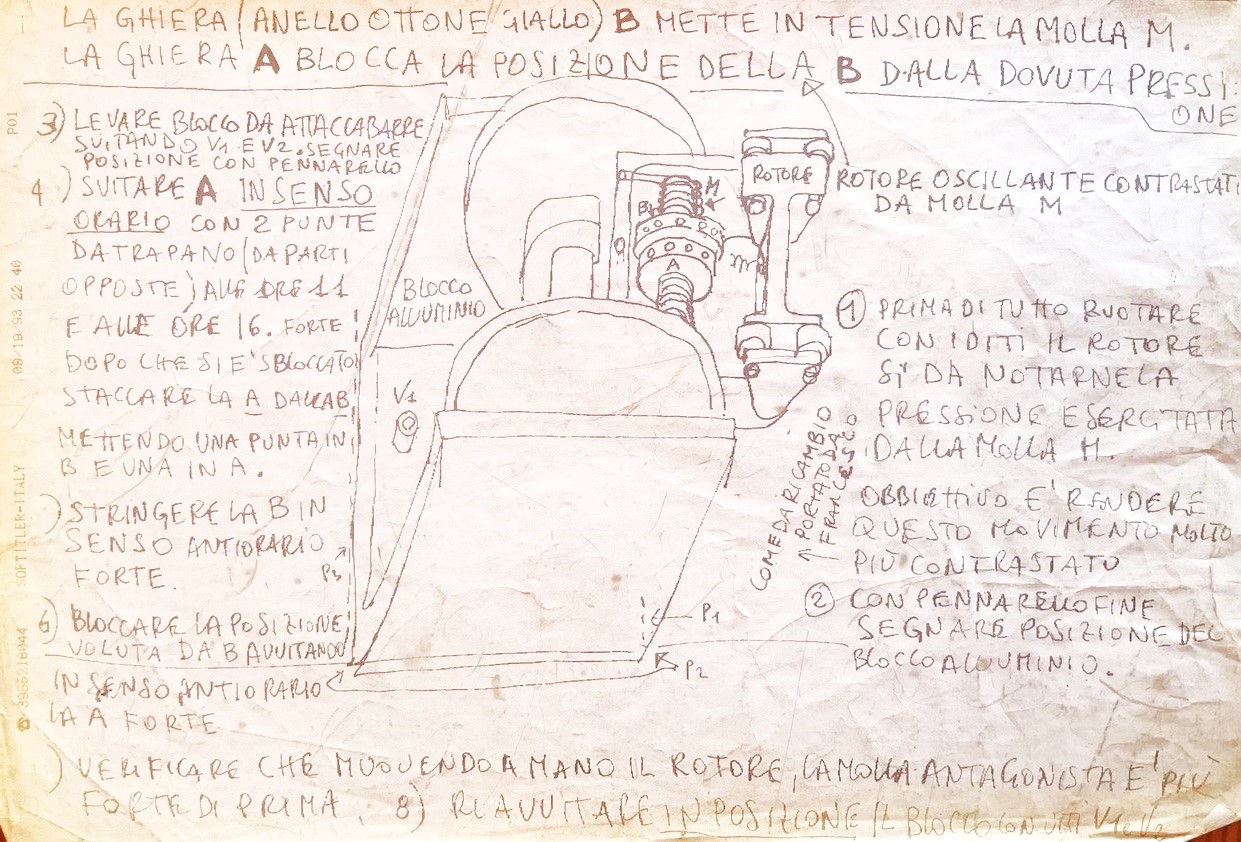 LA GHIERA (ANELLO OTTONE GIALLO) B METTE IN TENSIONE LA MOLLA M.
LA GHIERA A BLOCCA LA POSIZIONE DELLA B DALLA DOVUTA PRESSI-
ONE
3) LEVARE BLOCCO DA ATTACCABARRE
SVITANDO V1 E V2. SEGNARE
POSIZIONE CON PENNARELLO
4) SVITARE A IN SENSO
ORARIO CON 2 PUNTE
DA TRAPANO (DA PARTI
OPPOSTE) ALLE ORE 11
E ALLE ORE 16. FORTE
DOPO CHE SI E' SBLOCCATO
STACCARE LA A DALLA B
METTENDO UNA PUNTA IN
B E UNA IN A.
) STRINGERE LA B IN
SENSO ANTIORARIO
FORTE.
6) BLOCCARE LA POSIZIONE
VOLUTA DA B AVVITANDO
IN SENSO ANTIORARIO
LA A FORTE
) VERIFICARE CHE MUOVENDO A MANO IL ROTORE, LA MOLLA ANTAGONISTA E' PIÙ
FORTE DI PRIMA. 8) RIAVVITARE IN POSIZIONE IL BLOCCO CON VITI V1 e V2
BLOCCO
ALLUMINIO
V1
P3
B
M
A
m
ROTORE
P1
P2
ROTORE OSCILLANTE CONTRASTAT
DA MOLLA M
1 PRIMA DI TUTTO RUOTARE
CON I DITI IL ROTORE
SI' DA NOTARNE LA
PRESSIONE ESERCITATA
DALLA MOLLA M.
OBBIETTIVO E' RENDERE
QUESTO MOVIMENTO MOLTO
PIÙ CONTRASTATO
2 CON PENNARELLO FINE
SEGNARE POSIZIONE DEL
BLOCCO ALLUMINIO.
COME DA RICAMBIO
PORTATO DA
FRANCESCO
P01
09/10/93 22 40
SOFTITLER-ITALY